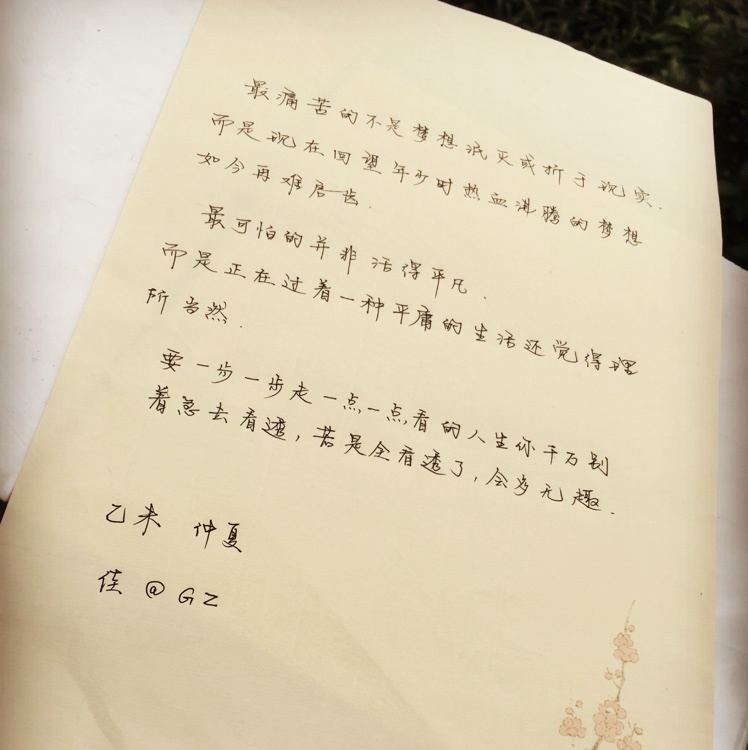 最痛苦的不是梦想泯灭或折于现实.
而是现在回望年少时热血沸腾的梦想
如今再难启齿.
最可怕的并非活得平凡.
而是正在过着一种平庸的生活还觉得理
所当然.
要一步一步走一点一点看的人生你千万别
着急去看透,若是全看透了,会多无趣.
乙未 仲夏
佳@GZ